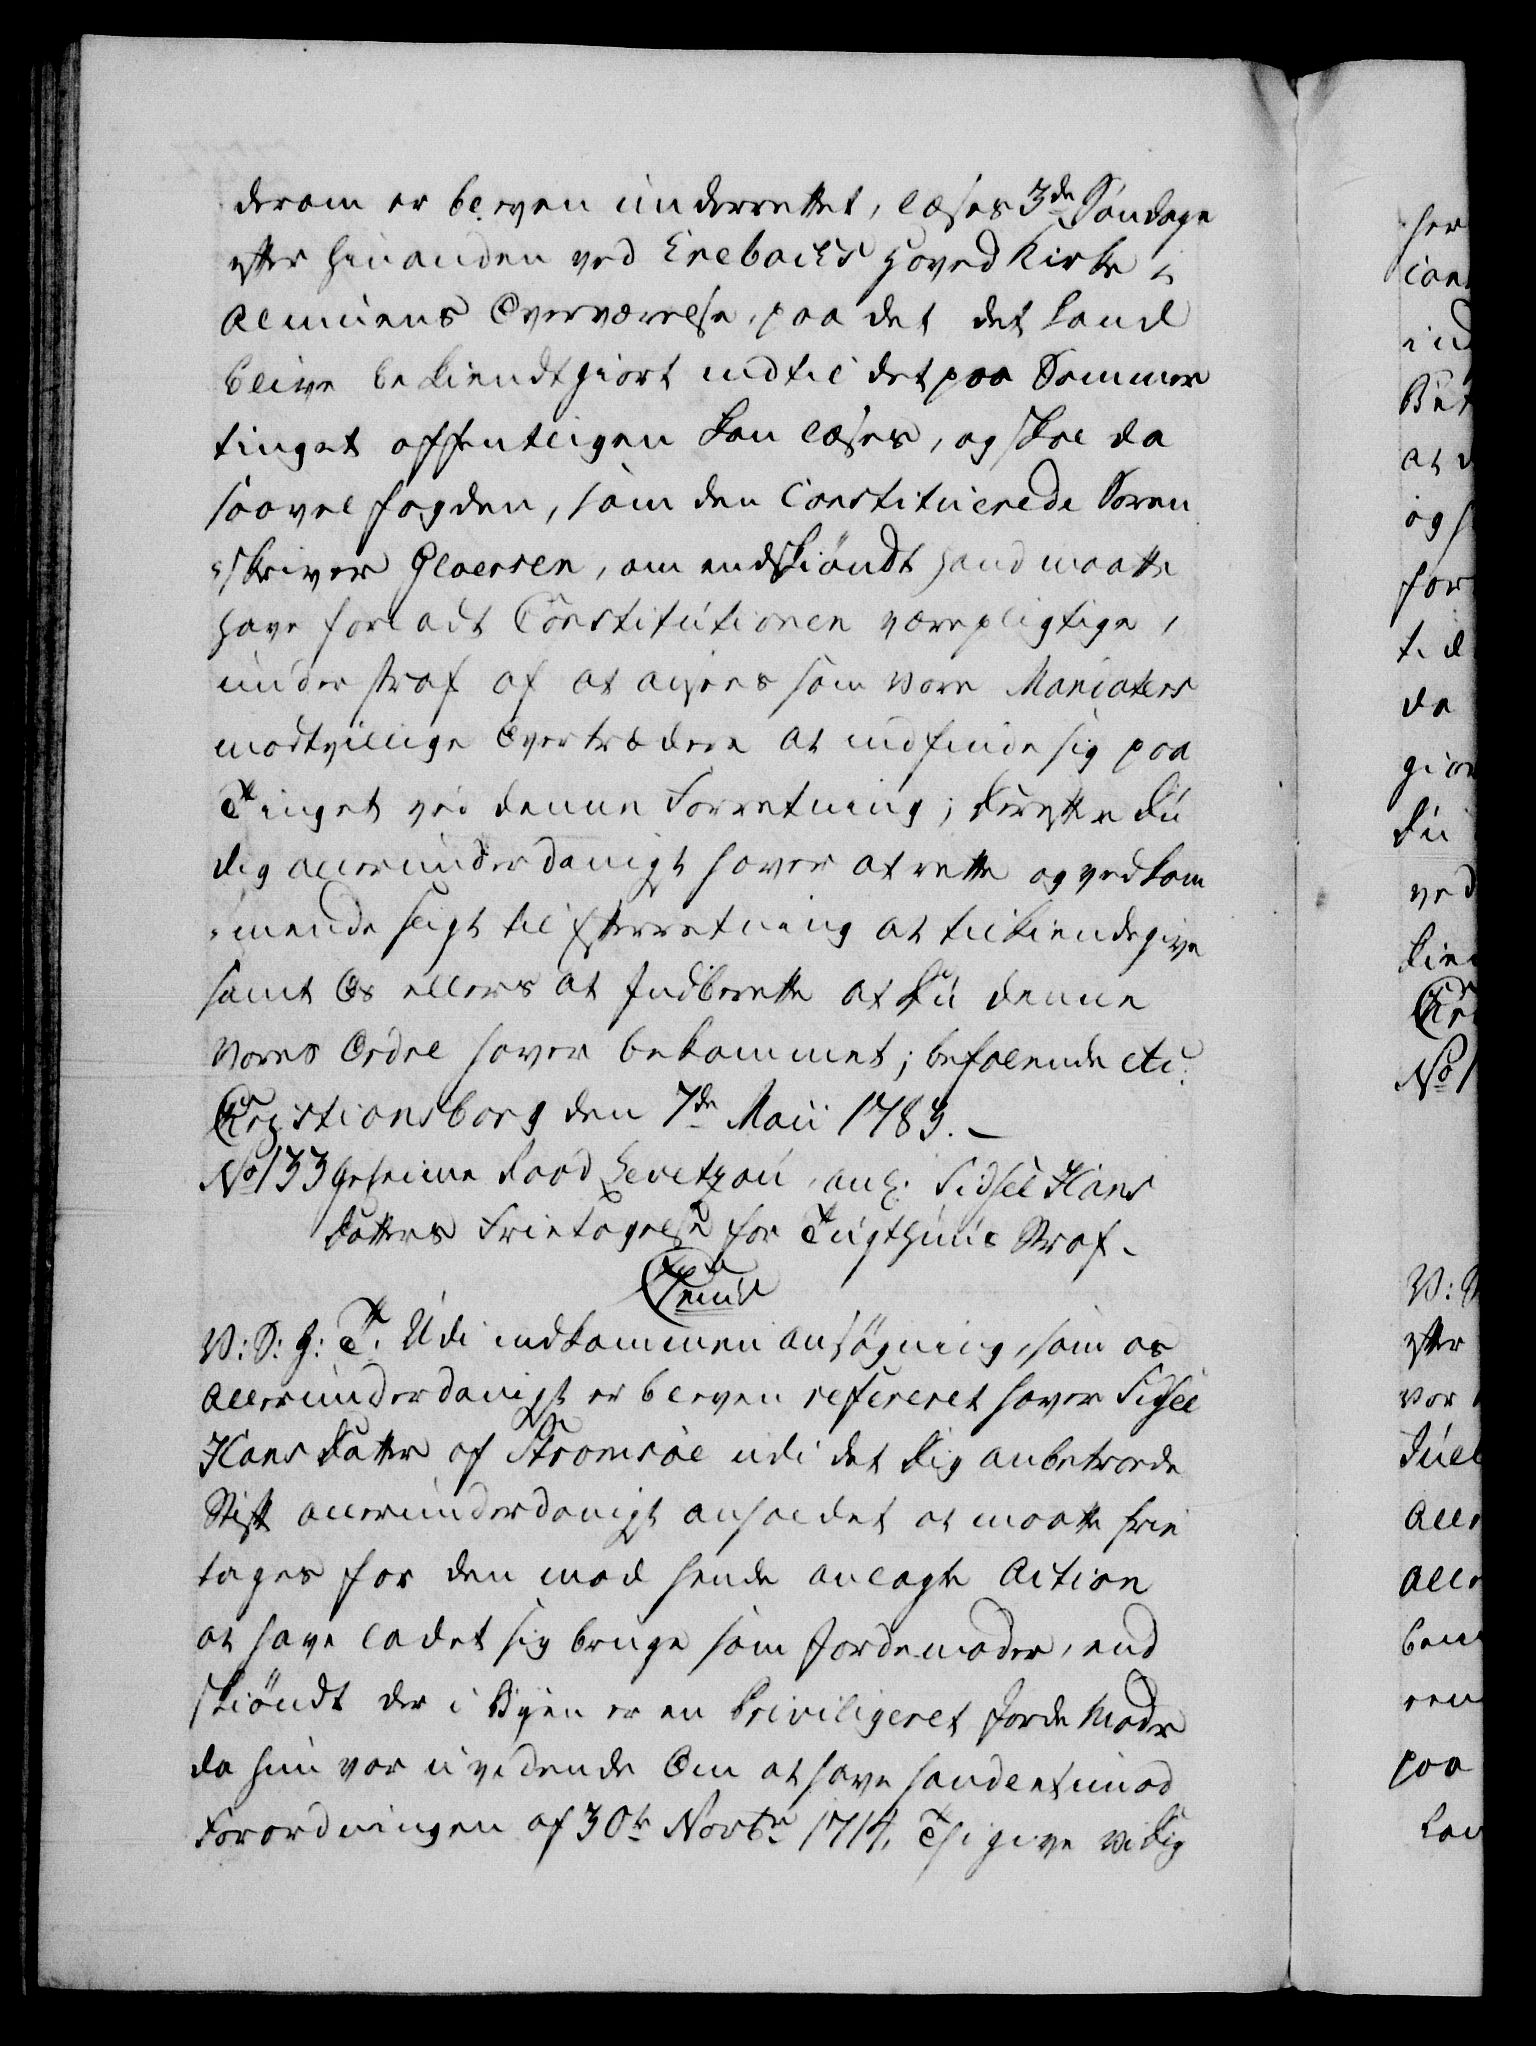 derom er bleven underrettet, læses 3de Søndage
efter hinanden ved Enebacks Hoved Kirke i
Almuens Overværelse, paa det det kand
blive bekiendtgiort indtil det paa Sommer
tinget offentligen kan læses, og skal da
saavel fogden, som den Constituerede Soren
=skriver Gloersen, om endskiöndt hand maatte
have forladt Constitutionen værepligtige,
under straf af at ansees som vore Mandaters
modtvillige Overtrædere at indfinde sig paa
Tinget ved denne Forretning; Derefter Du
dig allerunderdanigst haver at rette og vedkom
=mende sligt til Efterretning at tilkiendegive
samt Os ellers at Indberette at Du denne
Vores Ordre haver bekommet; befalende etc.
Christiansborg den 7de Maii 1783. —
No 133 Geheime Raad Levetzau, ang. Sidsel Hans
Datters Frietagelse for Tugthuus Straf.
V: S: G: T. Udi indkommen ansögning, som os
allerunderdanigst er bleven refereret haver Sidsel
Hans Datter af Strømsöe udi det Dig anbetroede
Stift allerunderdanigst anholdet at maatte frie
tages for den mod hende anlagte Action
at have ladet sig bruge som Jordemoder, end
skiöndt der i Byen er en Priviligeret Jorde Moder
da hun var uvidende Om at have handlet imod
Forordningen af 30te Novbr 1714. Thi give Vi Dig
her
ind
at d
og s
for
da
Du
ved
No 1
V: S
efter
vor
Juel
Aller
paa